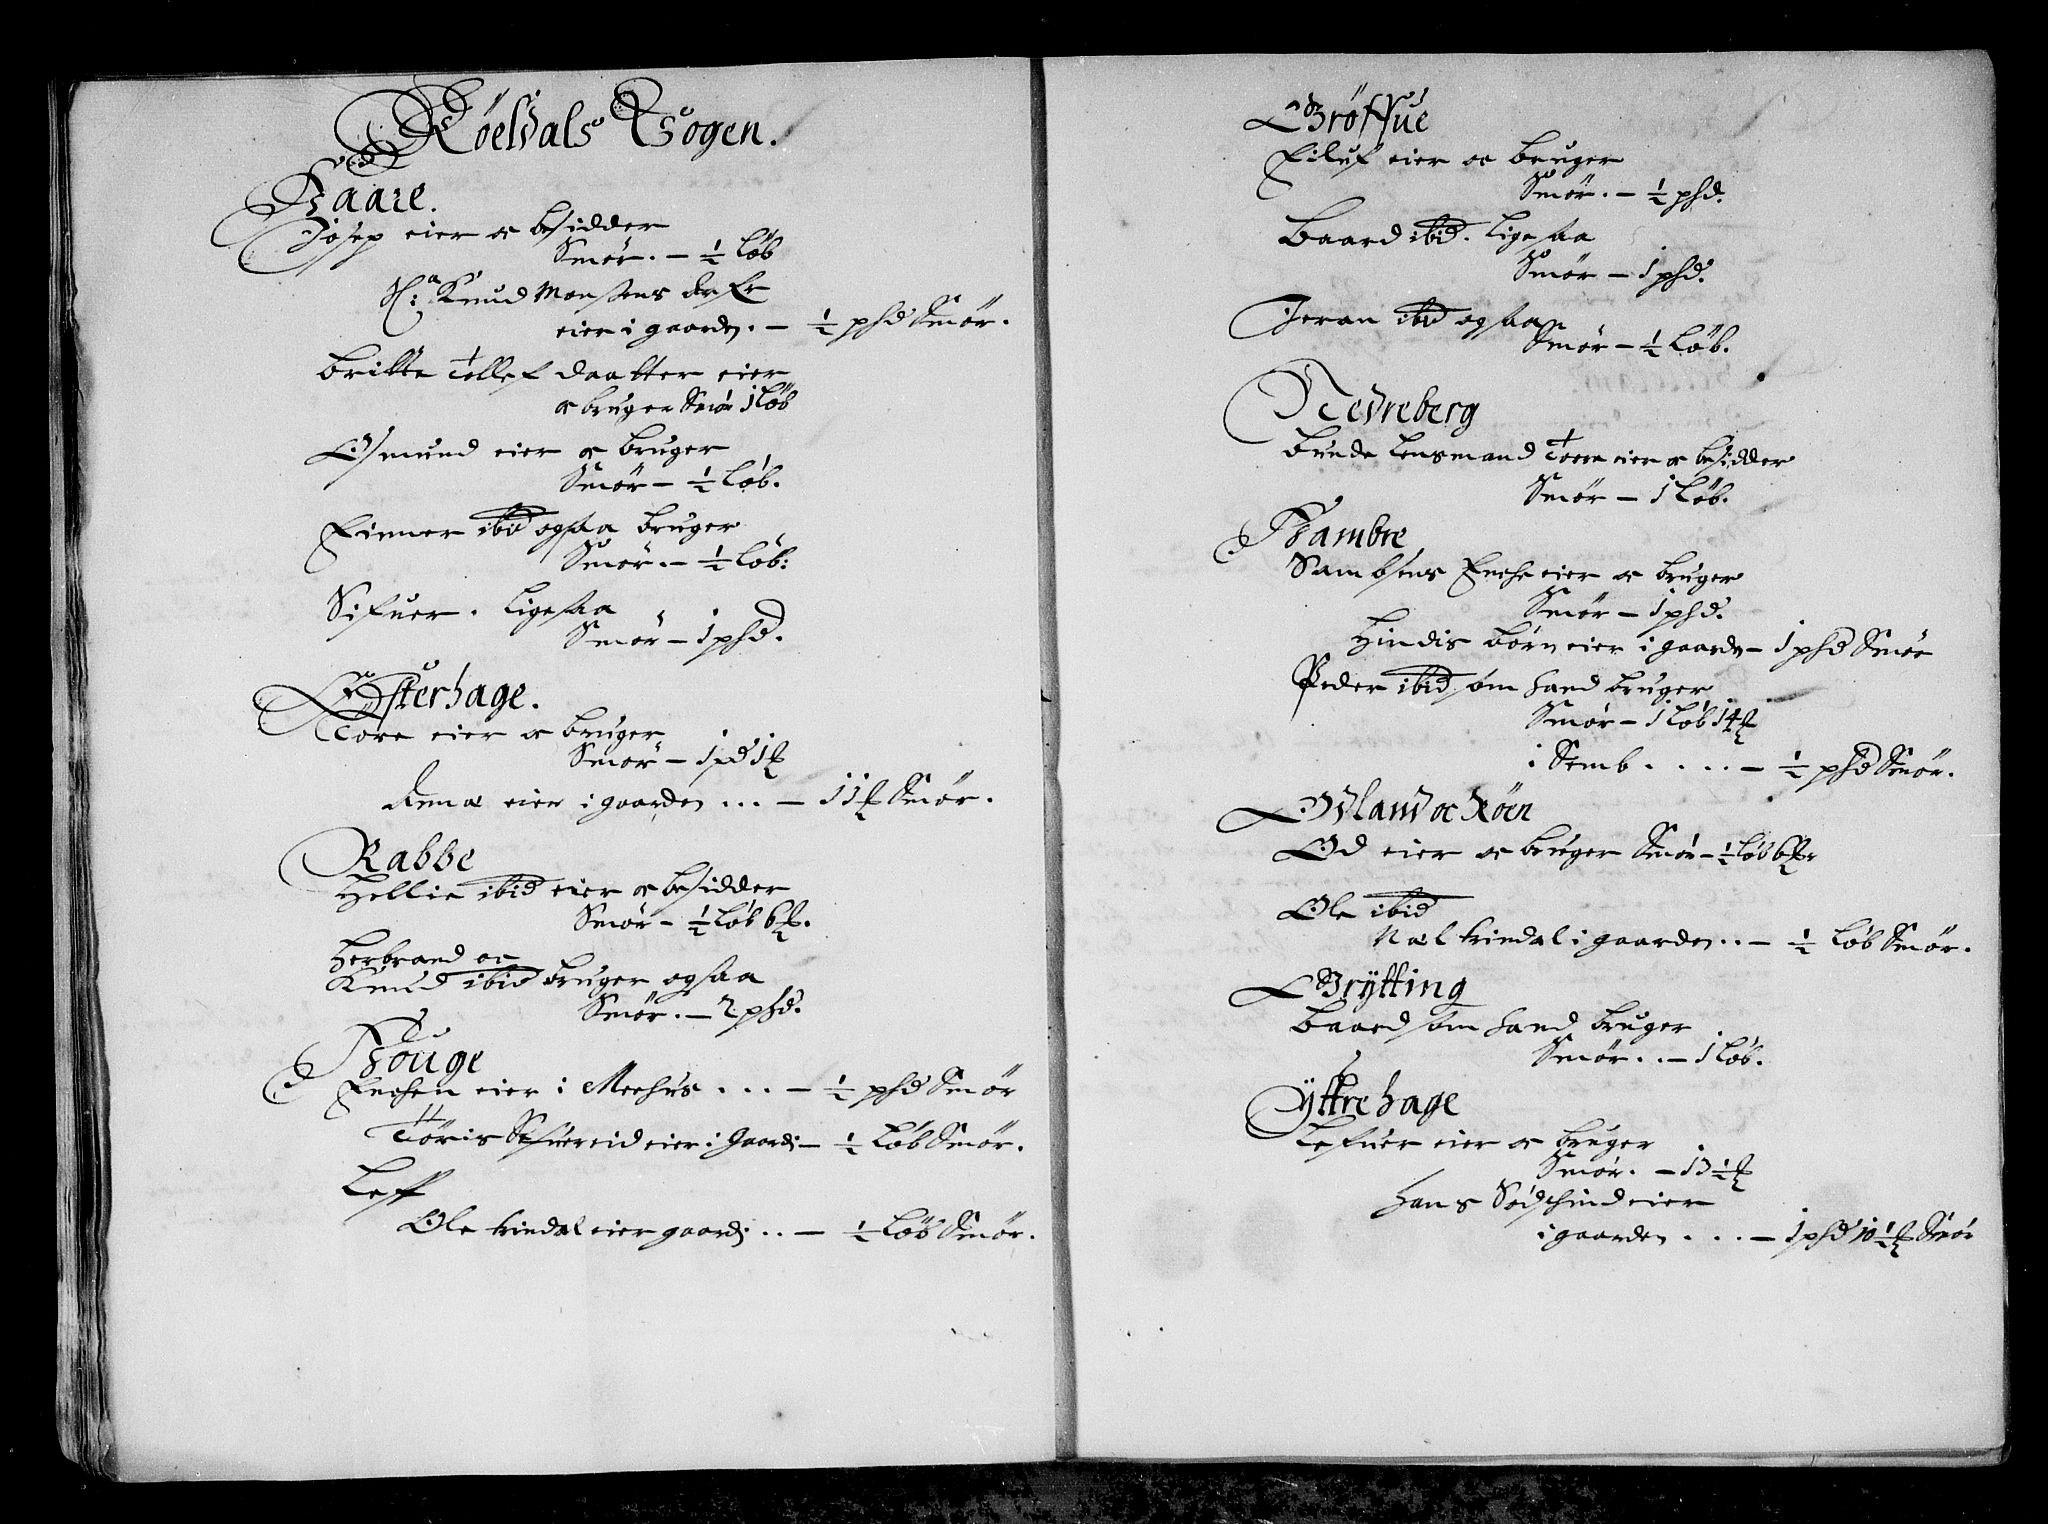 Röeldals Sogen.
Haare.
Josep eier oc besidder
Smör. — ½ Löb
H: Knud Monsens
eier i gaarden. — ½ phd Smör.
Britte Tollef daatter eier
oc bruger Smör 1 Löb
Osmund eier oc bruger
Smör — ½ Löb.
Einner ibid ogsaa bruger
Smör. — ½ Löb:
Sifuer. ligesaa
Smör — 1 phd.
Østerhage.
Tore eier oc bruger
Smör — 1 pd 1 ℔
eier i gaarden ... — 11 ℔ Smör.
Rabbe
Hellie ibid eier oc besidder
Smör — ½ Löb 6 ℔.
Herbrand oc
Knud ibid bruger ogsaa
Smör. — 2 phd.
Houge
Enchen eier i Meehus ... — ½ phd Smör
Töris eier i Gaard: — ½ Löb Smör.
Leff
Ole eier gaard: .. — ½ Löb Smör.
Bröffue
Eiluf eier oc bruger
Smör. — ½ phd.
Baard ibid. ligesaa
Smör — 1 phd.
Joran ibid ogsaa
Smör — ½ Löb.
Nedreberg
Bunde Lensmand Tore eier oc besidder
Smör — 1 Löb.
Hambre
Enche eier oc bruger
Smör — 1 phd.
Hindis börn eier i gaarden — 1 phd Smör
Peder ibid som hand bruger
Smör — 1 Löb 14 ℔
i Semb .... — ½ phd Smör.
Odland oc
Od eier oc bruger Smör — ½ Löb 6 ℔
Ole ibid
i gaarden .. — ½ Löb Smör.
Brytting
Baard som hand bruger
Smör .. — 1 Löb.
Yttre hage
Lefuer eier oc bruger
Smör. — 13 ½ ℔
Hans eier
i gaarden ... — 1 phd 10 ½ ℔ Smör